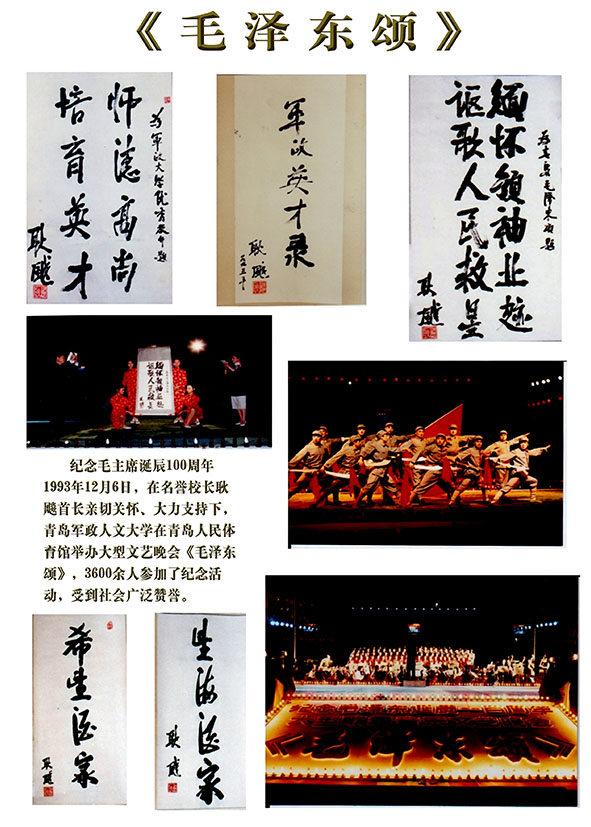 《毛泽东颂》
师德高尚
培育英才
耿飚
军政英才录
耿飚
缅怀领袖
讴歌人民救星
耿飚
纪念毛主席诞辰100周年
1993年12月6日，在名誉校长耿
飚首长亲切关怀、大力支持下，
青岛军政人文大学在青岛人民体
育馆举办大型文艺晚会《毛泽东
颂》，3600余人参加了纪念活
动，受到社会广泛赞誉。
希生酒家
耿飚
生海酒家
耿飚
《毛泽东颂》